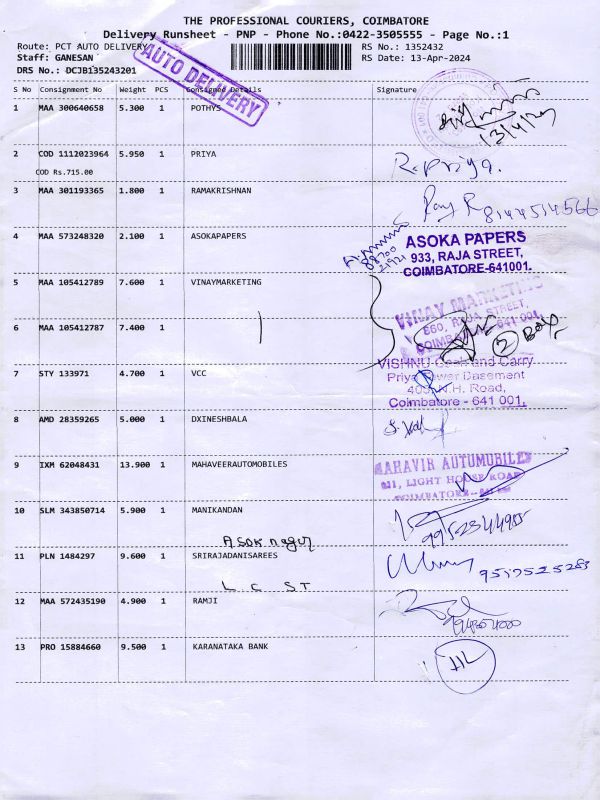 THE PROFESSIONAL COURIERS, COIMBATORE
Delivery Runsheet - PNP - Phone No.:0422-3505555 - Page No.:1
Route: PCT AUTO DELIVERY
RS No.: 1352432
Staff: GANESAN
RS Date: 13-Apr-2024
DRS No.: DCJB135243201
AUTO DELIVERY
S No Consignment No Weight PCS Consigned Details Signature
1 MAA 300640658 5.300 1 POTHYS
13/4/24
2 COD 1112023964 5.950 1 PRIYA R. Priya.
COD Rs.715.00
3 MAA 301193365 1.800 1 RAMAKRISHNAN
8144514566
4 MAA 573248320 2.100 1 ASOKAPAPERS
ASOKA PAPERS
933, RAJA STREET,
COIMBATORE-641001.
5 MAA 105412789 7.600 1 VINAYMARKETING
VINAY MARKETING
860, RAJA STREET,
COIMBATORE-641 001.
6 MAA 105412787 7.400 1
2 Box
7 STY 133971 4.700 1 VCC
VISHNU Cash and Carry
Priya Tower Basement
405, N.H. Road,
Coimbatore - 641 001.
8 AMD 28359265 5.000 1 DXINESHBALA
9 IXM 62048431 13.900 1 MAHAVEERAUTOMOBILES
MAHAVIR AUTOMOBILES
LIGHT HOUSE ROAD
COIMBATORE
10 SLM 343850714 5.900 1 MANIKANDAN
Asok nagar
11 PLN 1484297 9.600 1 SRIRAJADANISAREES
9517525283
L C ST
12 MAA 572435190 4.900 1 RAMJI
13 PRO 15884660 9.500 1 KARANATAKA BANK